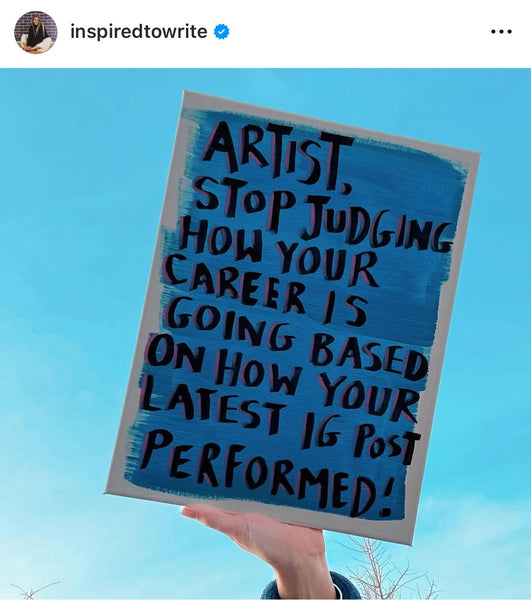 inspiredtowrite
ARTIST,
STOP JUDGING
HOW YOUR
CAREER IS
GOING BASED
ON HOW YOUR
LATEST IG POST
PERFORMED!